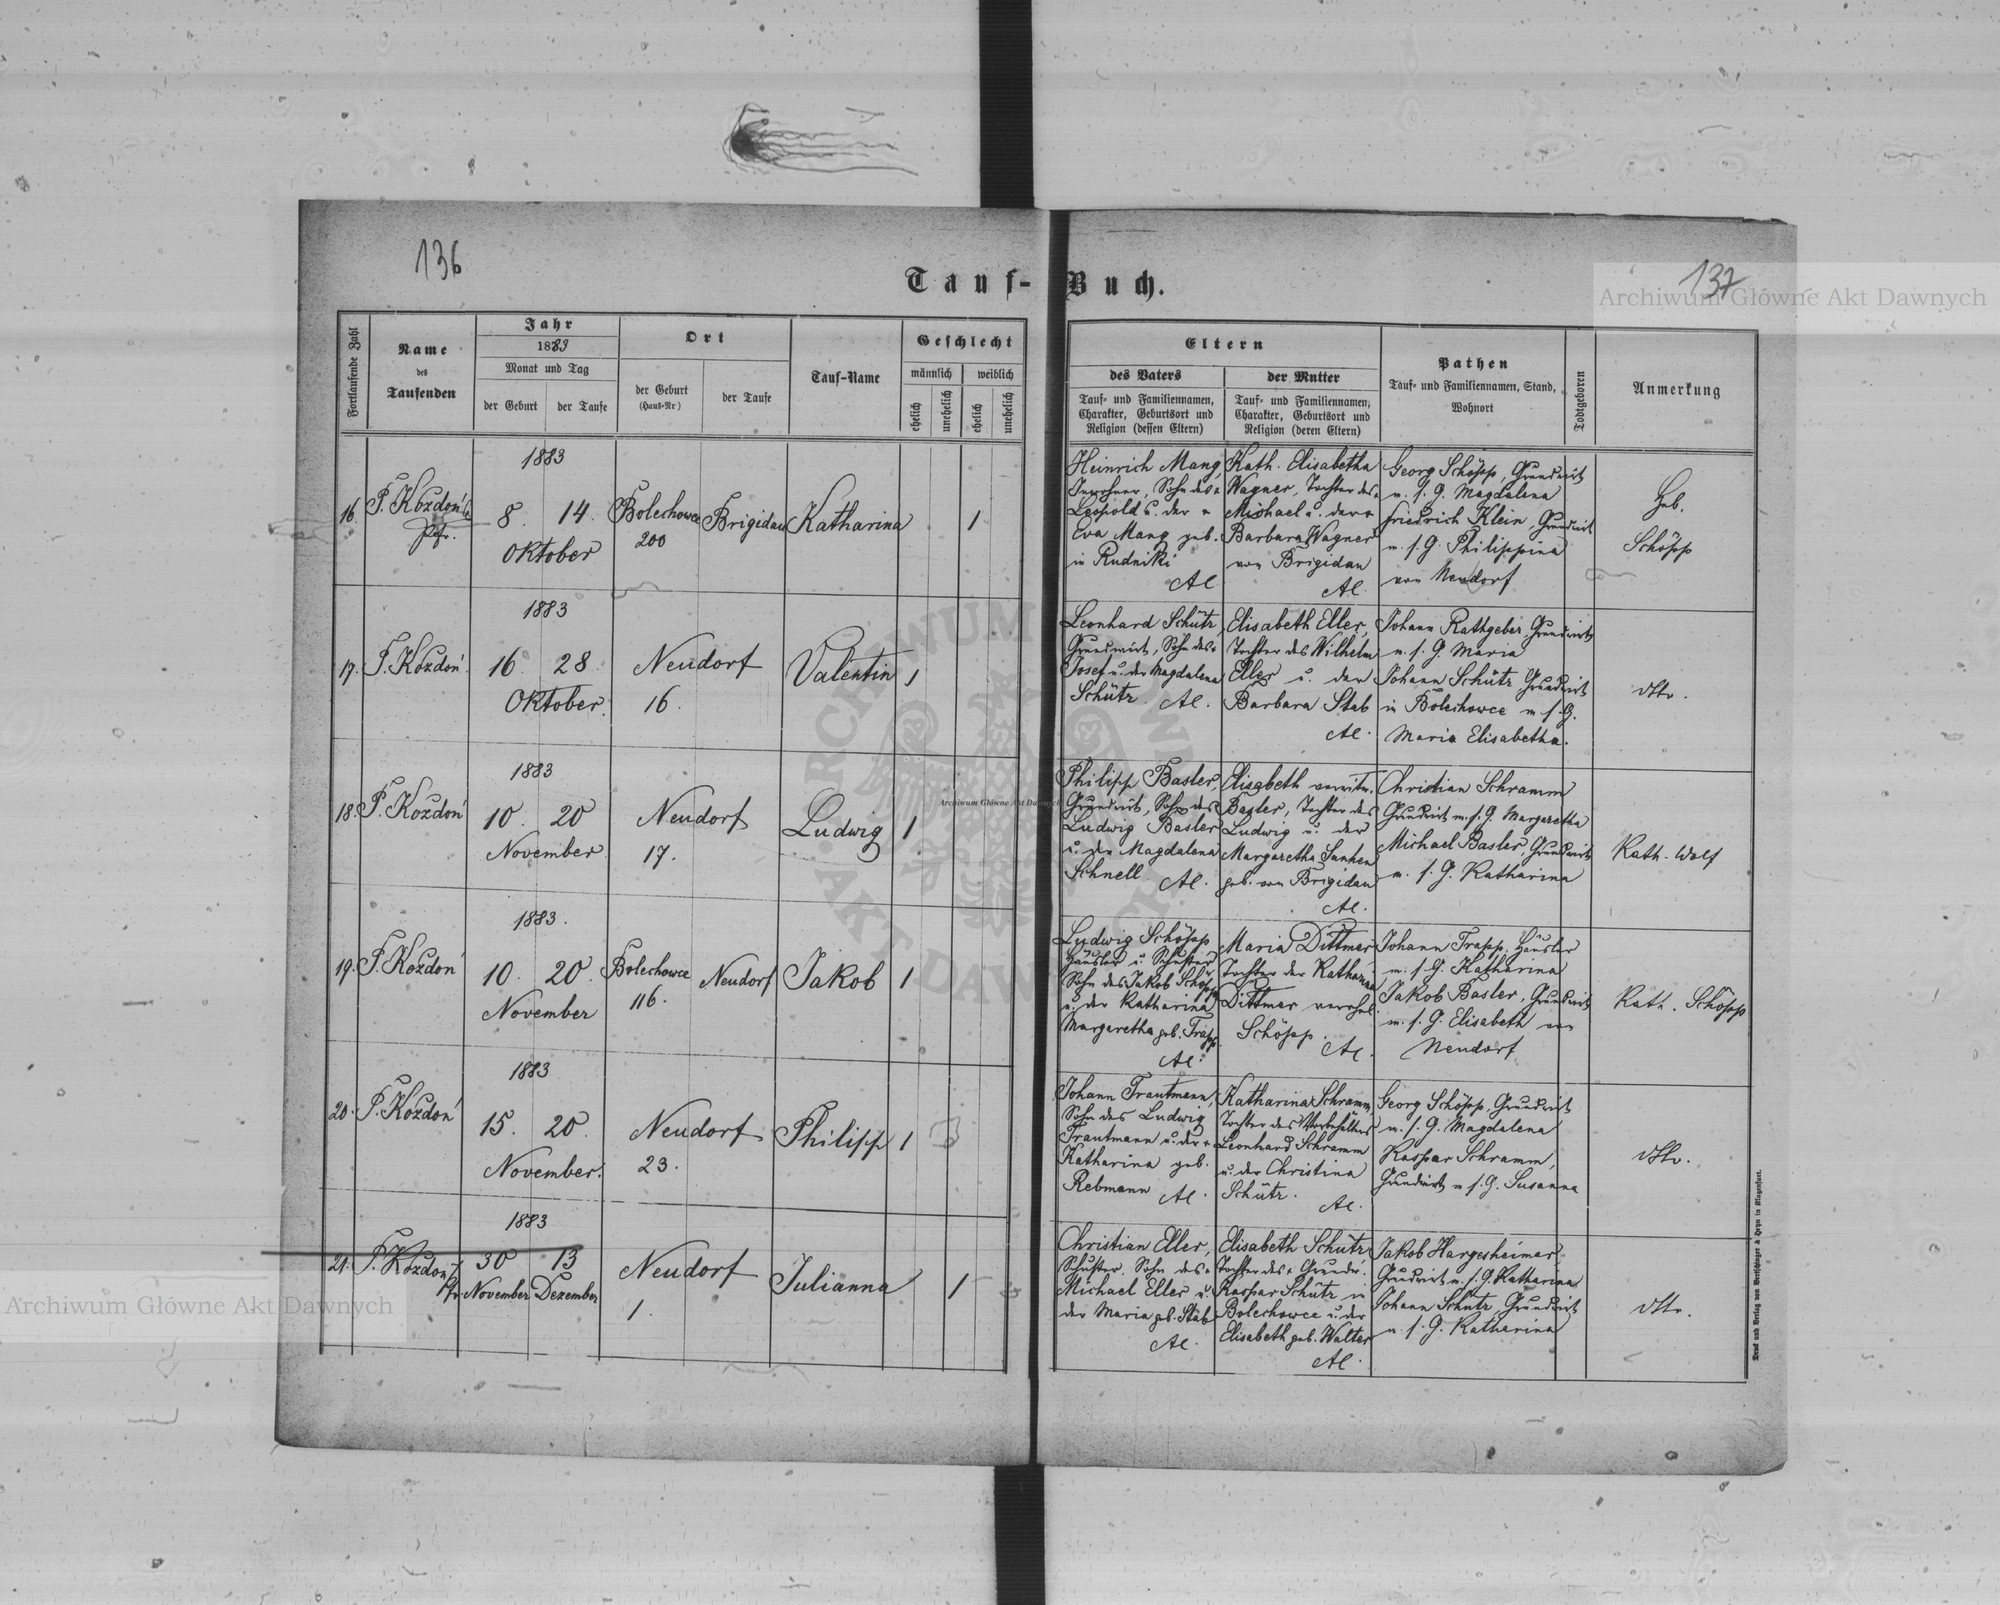 136
137
Archiwum Główne Akt Dawnych
Tauf-Buch.
Fortlaufende Zahl
Name
des
Taufenden
Jahr
1883
Monat und Tag
der Geburt
der Taufe
Ort
der Geburt
(Haus-Nr)
der Taufe
Tauf-Name
Geschlecht
männlich
weiblich
ehelich
unehelich
ehelich
unehelich
Eltern
des Vaters
Tauf- und Familiennamen,
Charakter, Geburtsort und
Religion (dessen Eltern)
der Mutter
Tauf- und Familiennamen,
Charakter, Geburtsort und
Religion (deren Eltern)
Pathen
Tauf- und Familiennamen, Stand,
Wohnort
Todtgeboren
Anmerkung
1883
16 P. Kozdoń
Pfr.
8. 14.
Oktober
Bolechowce
200
Brigidau
Katharina
1
Heinrich Mang,
Inwohner, Sohn des +
Leopold u. der +
Eva Mang geb.
in Rudniki
AC
Kath. Elisabetha
Wagner, Tochter des +
Michael u. der +
Barbara Wagner
von Brigidau
AC.
Georg Schöpp, Grundwirt
m. s. G. Magdalena
Friedrich Klein, Grundwirt
m. s. G. Philippina
von Neudorf
Heb.
Schöpp
1883
17. P. Kozdoń.
16 28
Oktober.
Neudorf
16.
Valentin
1
Leonhard Schütz,
Grundwirt, Sohn des +
Josef u. der Magdalena
Schütz. AC.
Elisabeth Eller,
Tochter des Wilhelm
Eller u. der
Barbara Stab
AC.
Johann Rathgeber, Grundwirt
m. s. G. Maria
Johann Schütz Grundwirt
in Bolechowce m s. G.
Maria Elisabetha.
dtto.
1883
18. P. Kozdoń
10. 20
November
Neudorf
17.
Ludwig
1
Philipp Basler,
Grundwirt, Sohn des
Ludwig Basler
u. der Magdalena
Schnell. AC.
Elisabeth verwitw.
Basler, Tochter des
Ludwig u. der
Margaretha
geb. von Brigidau
AC.
Christian Schramm
Grundwirt m. s. G. Margaretha
Michael Basler Grundwirt
m. s. G. Katharina
Kath. Wolf
1883.
19. P. Kozdoń
10. 20.
November
Bolechowce
116.
Neudorf
Jakob
1
Ludwig Schöpp
Häusler u. Schuster
Sohn des Jakob Schöpp
u. der Katharina
Margaretha geb. Trapp.
AC.
Maria Dittmer
Tochter der Katharina
Dittmer verehel.
Schöpp.
AC.
Johann Trapp, Häusler
m. s. G. Katharina
Jakob Basler, Grundwirt
m. s. G. Elisabeth von
Neudorf
Kath. Schöpp
1883
20. P. Kozdoń
15. 20.
November.
Neudorf
23.
Philipp
1
Johann Trautmann,
Sohn des Ludwig
Trautmann u. der +
Katharina geb.
Rebmann AC.
Katharina Schramm,
Tochter des Vorbehälters
Leonhard Schramm
u. der Christina
Schütz.
AC.
Georg Schöpp Grundwirt
m. s. G. Magdalena
Kaspar Schramm,
Grundwirt m s. G. Susanna
dtto.
1883
21. P. Kozdoń
Pfr.
30 13
November Dezember
Neudorf
1.
Julianna
1
Christian Eller,
Schuster, Sohn des +
Michael Eller u.
der Maria geb. Stab
AC.
Elisabeth Schütz
Tochter des + Grundw.
Kaspar Schütz in
Bolechowce u. der
Elisabeth geb. Walter
AC.
Jakob Hargesheimer,
Grundwirt m. s. G. Katharina
Johann Schütz, Grundwirt
m. s. G. Katharina
dtto.
Archiwum Główne Akt Dawnych
Archiwum Główne Akt Dawnych
Druck und Verlag von Bertschinger & Heyn in Klagenfurt.